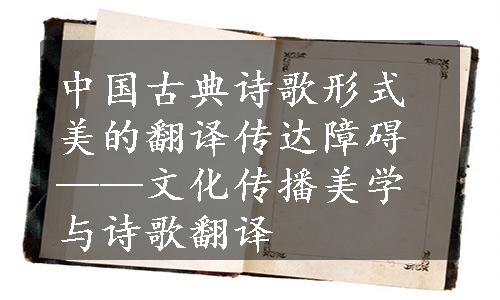 中国古典诗歌形式
美的翻译传达障碍
——文化传播美学
与诗歌翻译